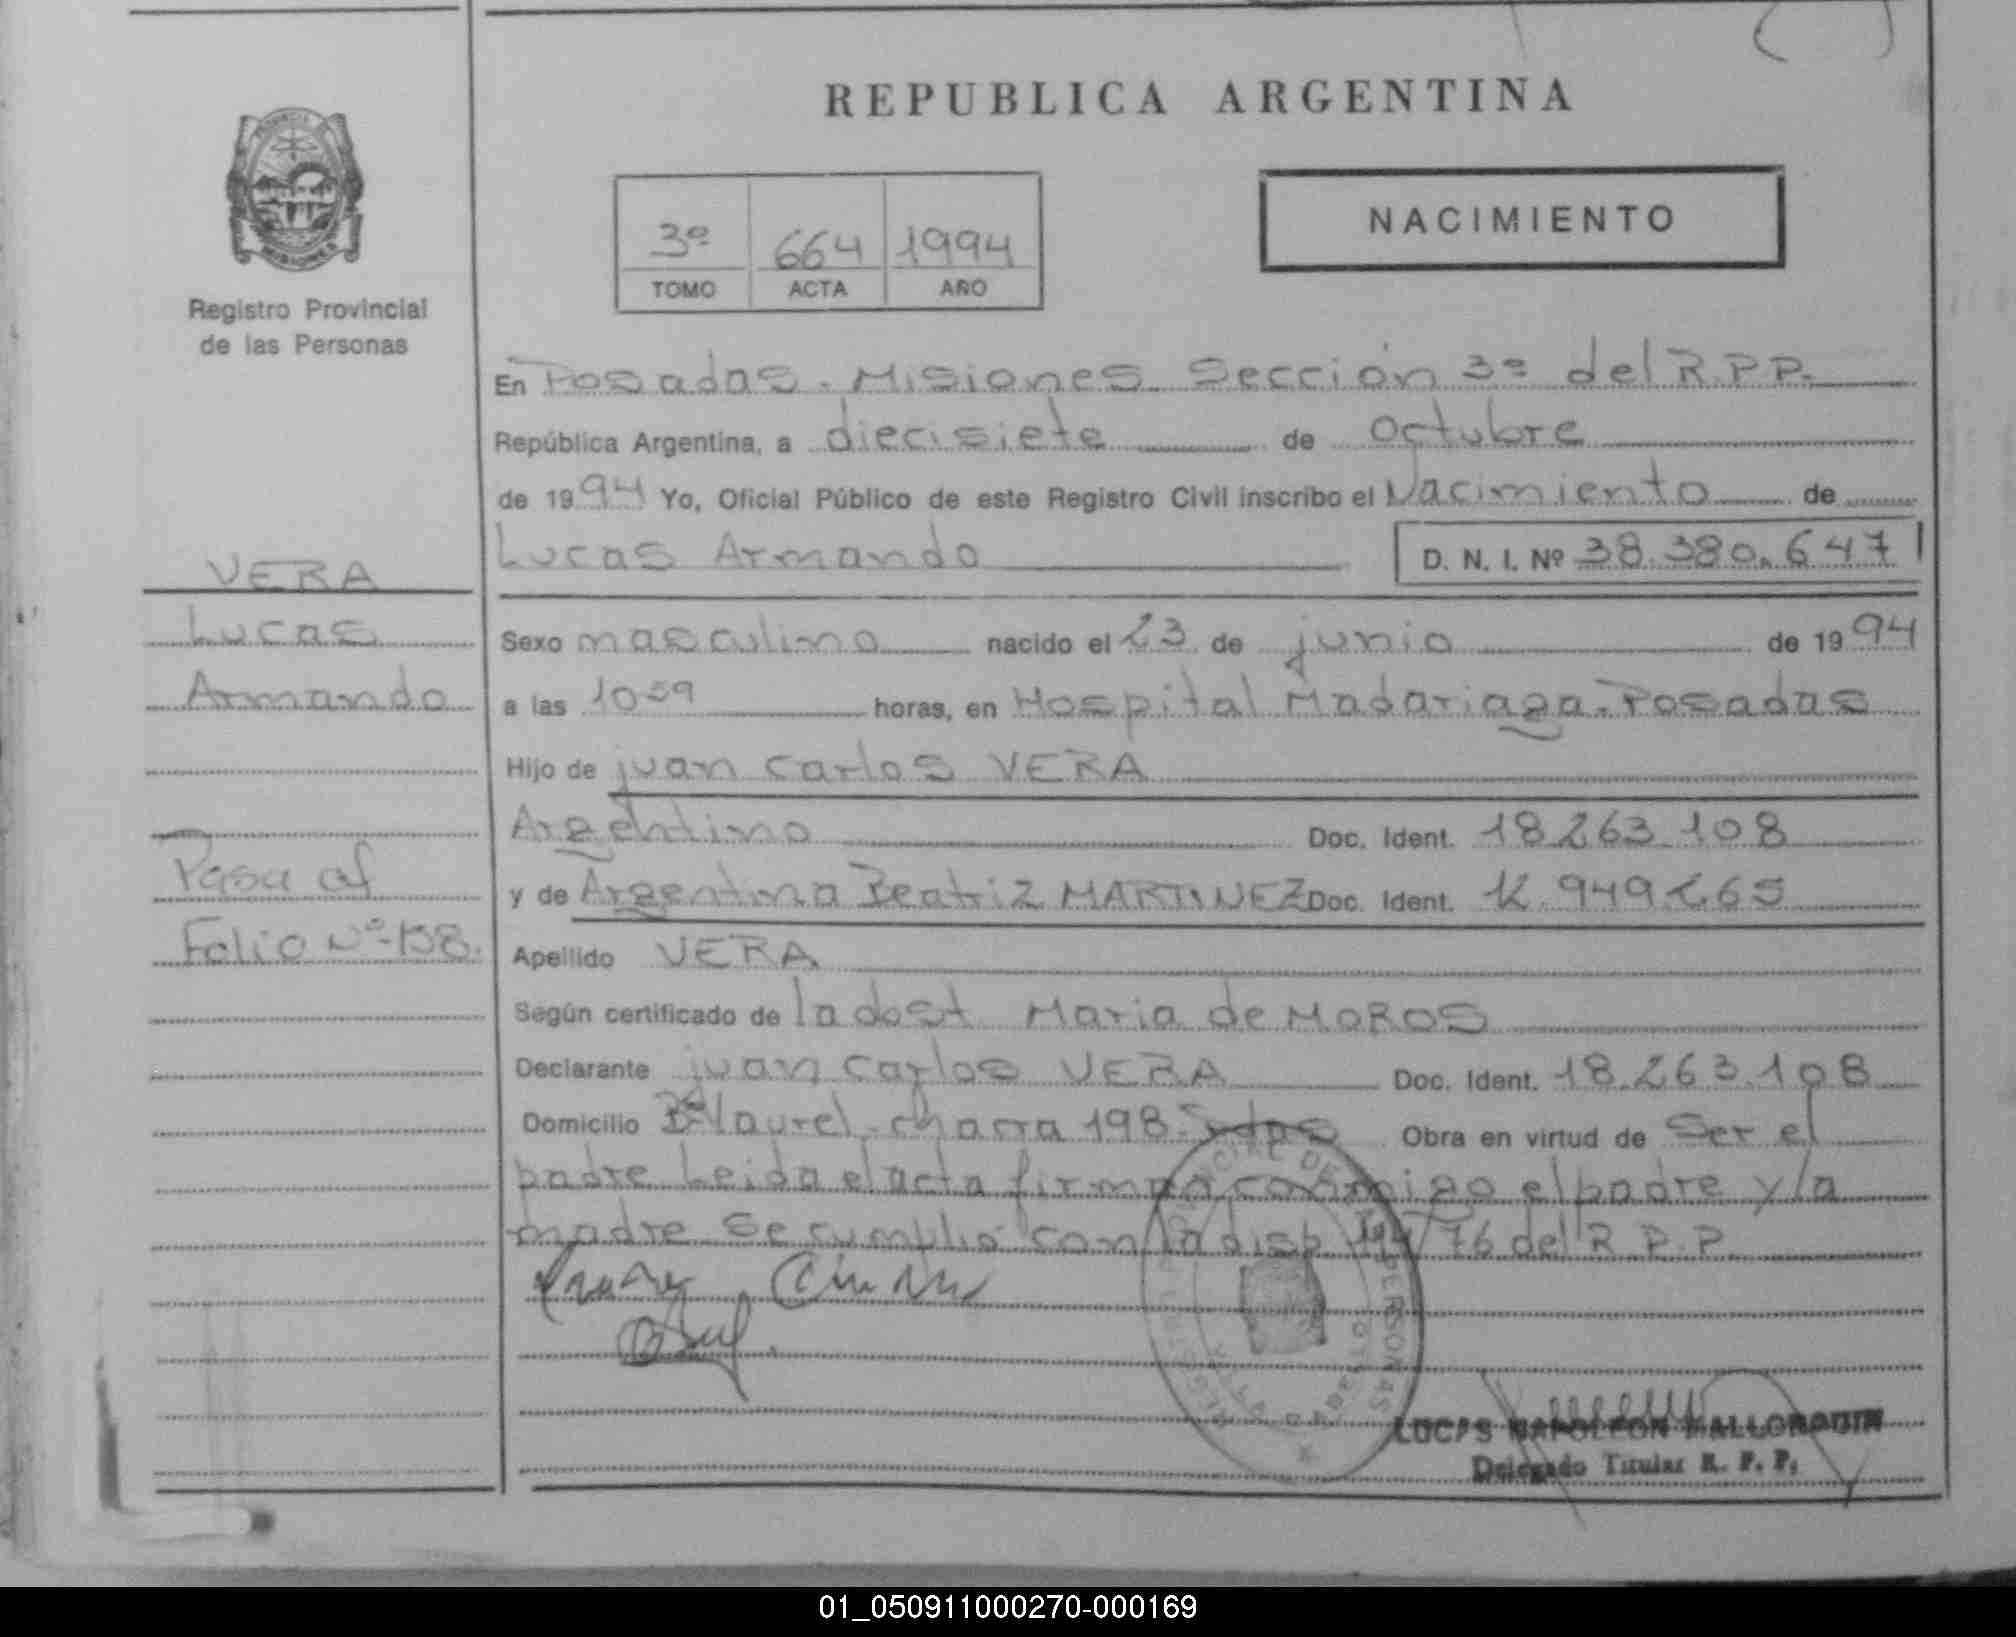 REPUBLICA ARGENTINA
PROVINCIA DE
MISIONES
Registro Provincial
de las Personas
3º 664 1994
TOMO ACTA AÑO
NACIMIENTO
En Posadas - Misiones Sección 3ª del R.P.P.
República Argentina, a diecisiete de octubre
de 1994 Yo, Oficial Público de este Registro Civil inscribo el Nacimiento de
Lucas Armando D. N. I. Nº 38.380.647
VERA
Lucas
Armando
Pasa al
Folio Nº 158.
Sexo masculino nacido el 23 de junio de 1994
a las 10:59 horas, en Hospital Madariaga - Posadas
Hijo de juan carlos VERA
Argentino Doc. Ident. 18 263 108
y de Argentina Beatriz MARTINEZ Doc. Ident. 12.949.265
Apellido VERA
Según certificado de la dost Maria de MOROS
Declarante juan carlos VERA Doc. Ident. 18.263.108
Domicilio Bº laurel - chacra 198 - Obra en virtud de ser el
padre Leida el acta firman conmigo el padre y la
madre se cumplió con la disp 76 del R.P.P.
LUCAS NAPOLEON
Delegado Titular R. P. P.
01_050911000270-000169